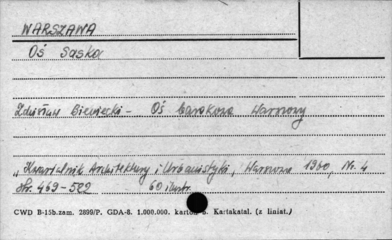 WARSZAWA
Oś Saska
Zdzisław Bieniecki - Oś barokowa Warszawy
"Kwartalnik Architektury i Urbanistyki", Warszawa 1960, Nr. 4
str. 469-522 60 ilustr.
CWD B-15b.zam. 2899/P. GDA-8. 1.000.000. karton s. Kartakatal. (z liniat.)